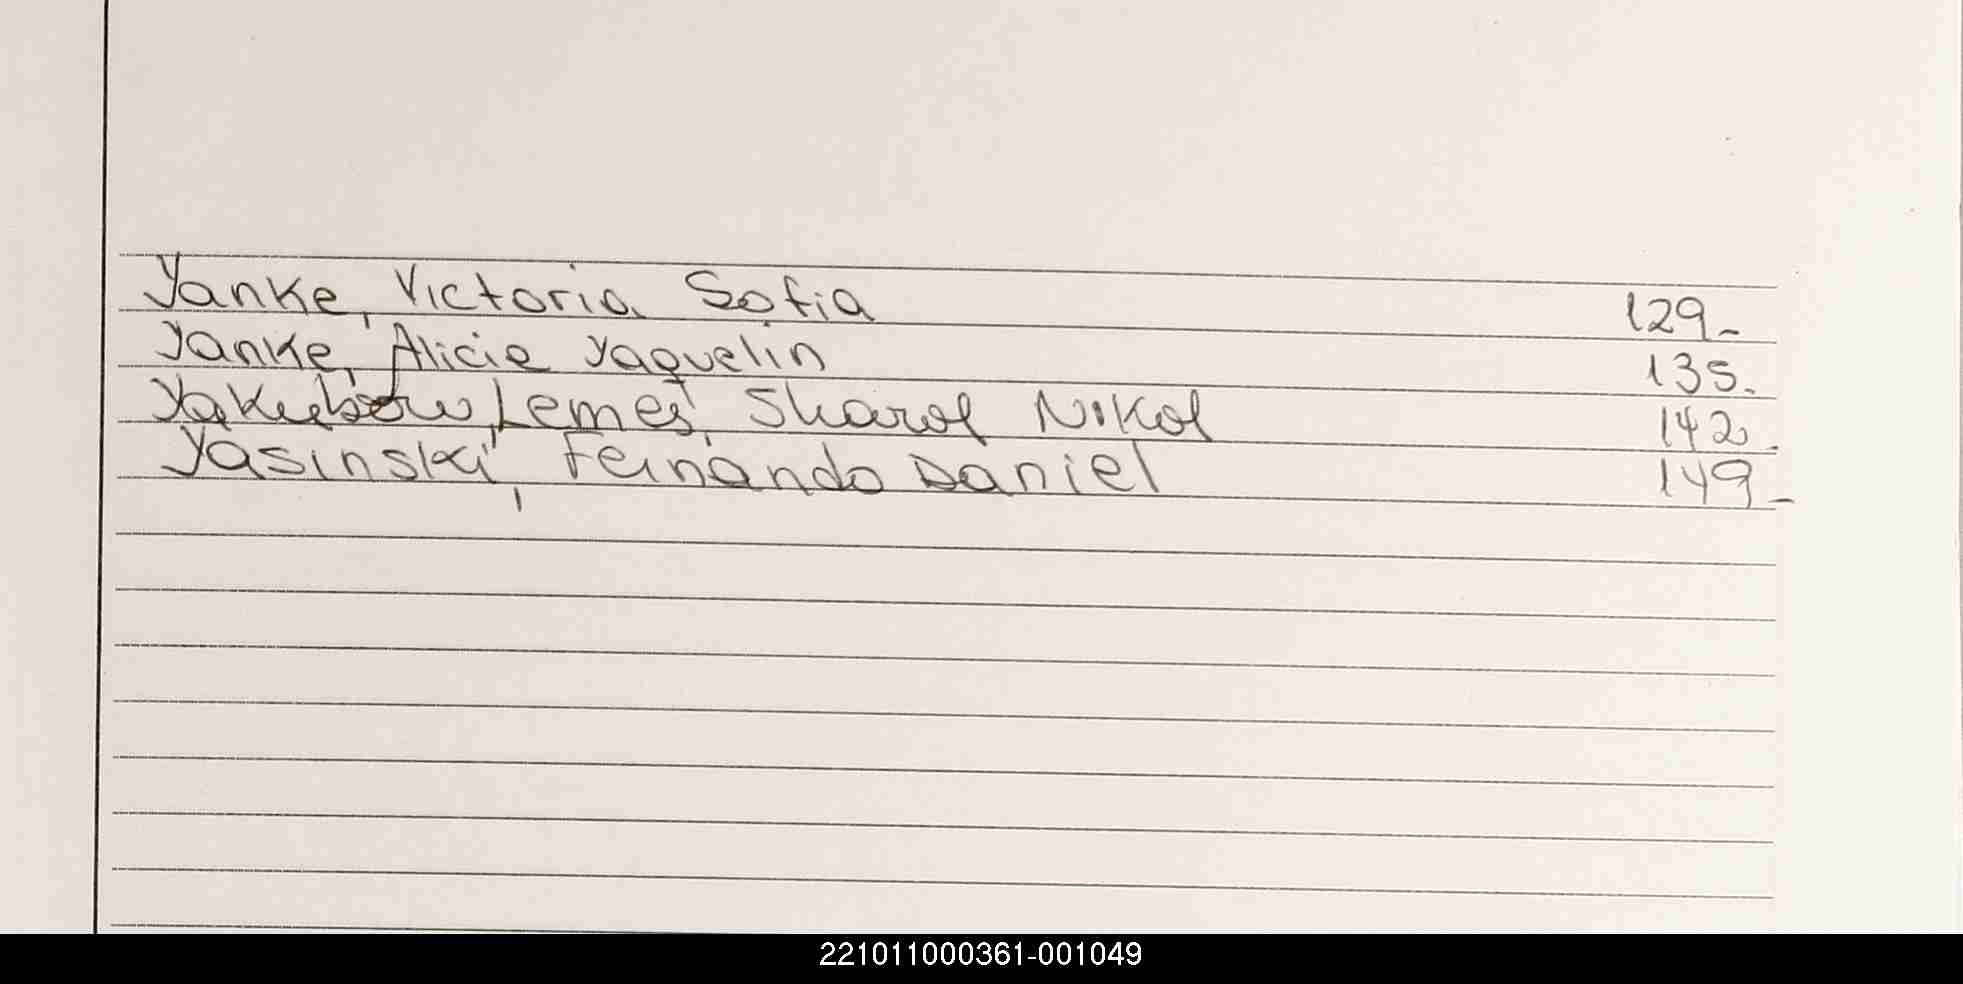 Yanke, Victoria Sofia 129-
Yanke, Alicia Yaquelin 135.
Yakubow Lemes, Sharol Nikol 142.
Yasinski, Fernando Daniel 149-
221011000361-001049